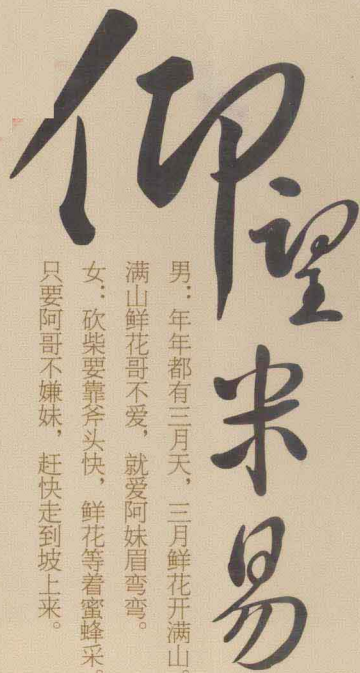 仰望米易
男：年年都有三月天，三月鲜花开满山。
满山鲜花哥不爱，就爱阿妹眉弯弯。
女：砍柴要靠斧头快，鲜花等着蜜蜂采。
只要阿哥不嫌妹，赶快走到坡上来。